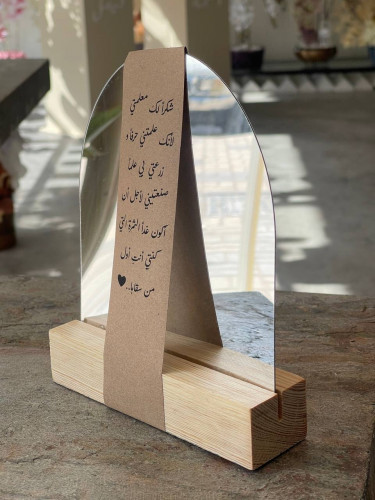 شكراً لك معلمتي
لأنك علمتني حرفاً و
زرعتي لي علماً
صنعتيني لأجل أن
أكون غداً الثمرة التي
كنتي أنتِ أول
من سقاها..♥